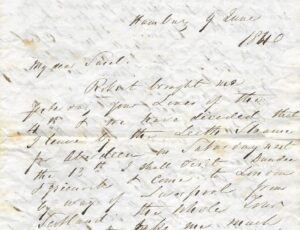 Hamburg 9 June
1840
My dear
Robert brought me
yesterday your lines of the
4th & we have decided that
I leave by the Leith Steamer
for Aberdeen on Saturday next
the 13th I shall visit Dundee
& to come to London
by way of Liverpool from
Scotland the whole tour
take me much